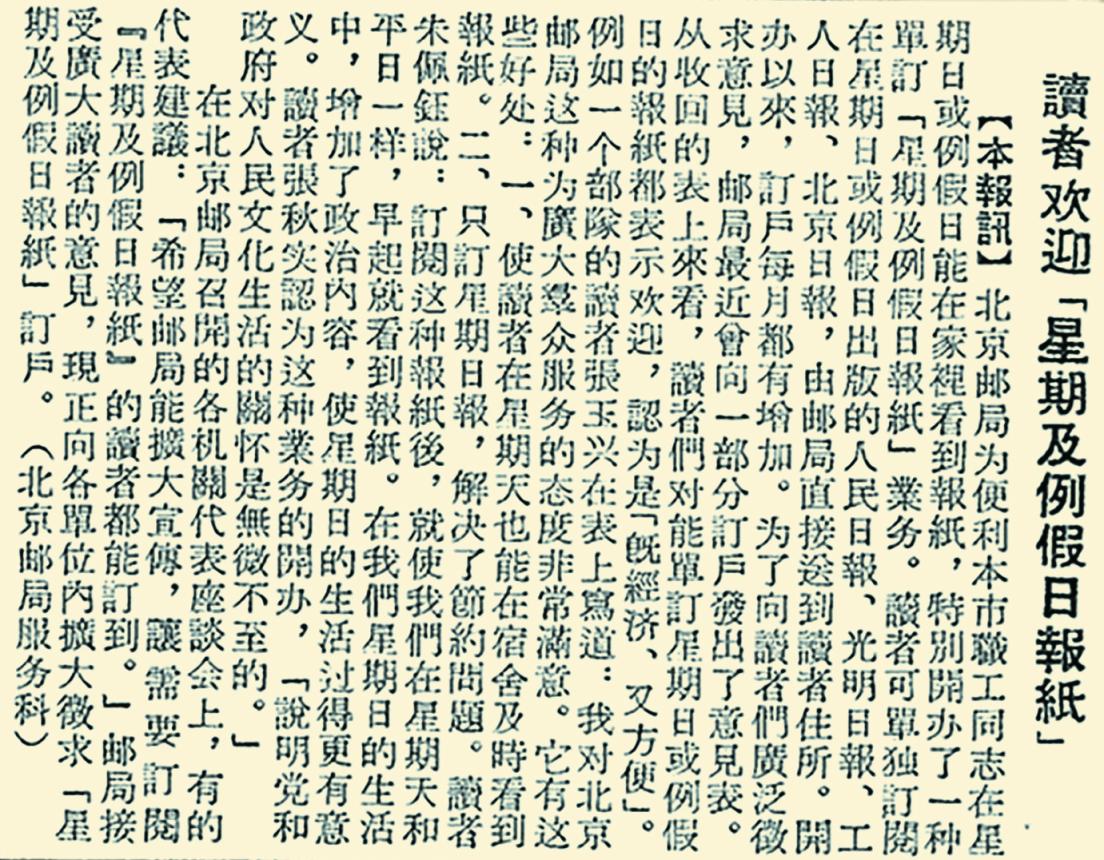 讀者欢迎「星期及例假日報紙」
【本報訊】北京邮局为便利本市職工同志在星
期日或例假日能在家裡看到報紙，特別開办了一种
單訂「星期及例假日報紙」業务。讀者可單独訂閱
在星期日或例假日出版的人民日報、光明日報、工
人日報、北京日報，由邮局直接送到讀者住所。開
办以來，訂戶每月都有增加。为了向讀者們廣泛徵
求意見，邮局最近曾向一部分訂戶發出了意見表。
从收回的表上來看，讀者們对能單訂星期日或例假
日的報紙都表示欢迎，認为是「旣經济、又方便」。
例如一个部隊的讀者張玉兴在表上寫道：我对北京
邮局这种为廣大羣众服务的态度非常滿意。它有这
些好处：一、使讀者在星期天也能在宿舍及時看到
報紙。二、只訂星期日報，解决了節約問題。讀者
朱佩鈺說：訂閱这种報紙後，就使我們在星期天和
平日一样，早起就看到報紙。在我們星期日的生活
中，增加了政治內容，使星期日的生活过得更有意
义。讀者張秋实認为这种業务的開办，「說明党和
政府对人民文化生活的關怀是無微不至的。」
在北京邮局召開的各机關代表座談会上，有的
代表建議：「希望邮局能擴大宣傳，讓需要訂閱
『星期及例假日報紙』的讀者都能訂到。」邮局接
受廣大讀者的意見，現正向各單位內擴大徵求「星
期及例假日報紙」訂戶。（北京邮局服务科）